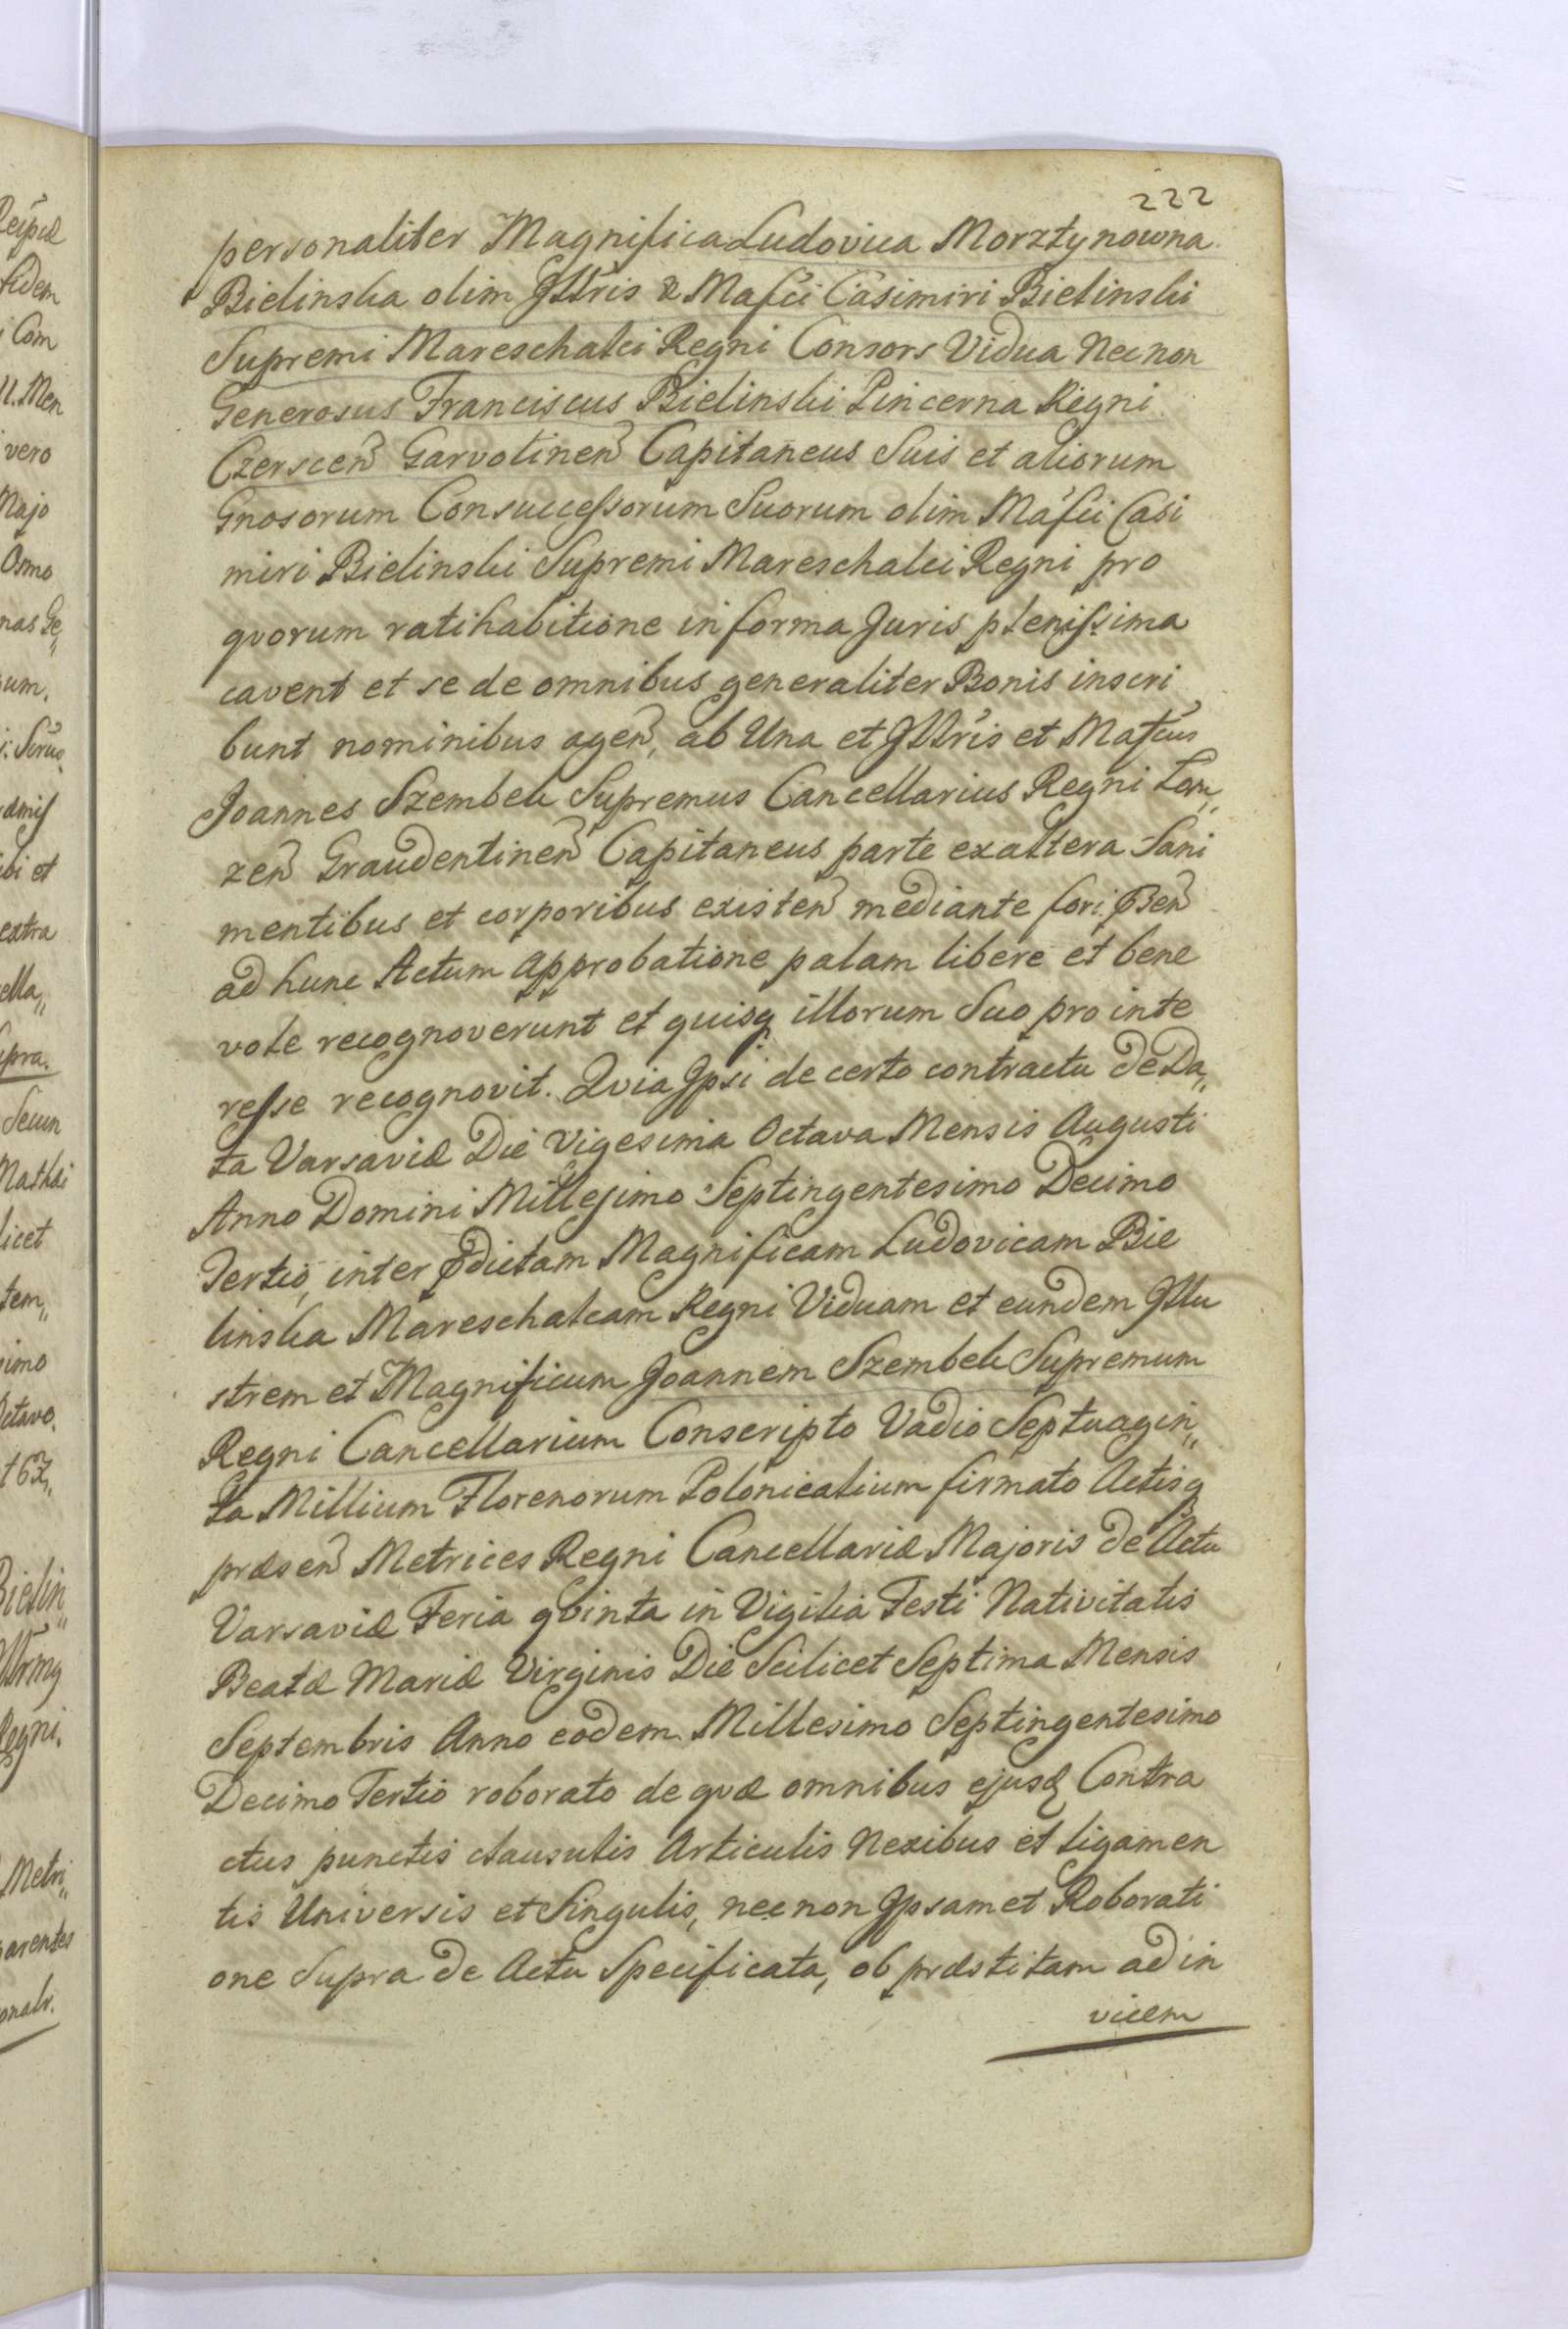 222
personaliter Magnifica Ludovica Morztynowna
Bielinska olim Jllris & Mafci Casimiri Bielinski
Supremi Mareschalci Regni Consors Vidua Necnon
Generosus Franciscus Bielinski Pincerna Regni
Czerscen Garvolinen Capitaneus Suis et aliorum
Gnosorum Consuccessorum Suorum olim Mafci Casi
miri Bielinski Supremi Mareschalci Regni pro
qvorum ratihabitione in forma Juris plenissima
cavent et se de omnibus generaliter Bonis inscri
bunt nominibus agen, ab Una et Jllris et Mafcus
Joannes Szembek Supremus Cancellarius Regni Lom„
zen Graudentinen Capitaneus parte ex altera Sani
mentibus et corporibus existen mediante fori pñen
ad hunc Actum Approbatione palam libere et bene
vole recognoverunt et quisq illorum Suo pro inte
resse recognovit. Qvia Jpsi de certo contractu de Da„
ta Varsaviæ Die Vigesima Octava Mensis Augusti
Anno Domini Millesimo Septingentesimo Decimo
Tertio, inter pdictam Magnificam Ludovicam Bie
linska Mareschalcam Regni Viduam et eundem Jllu
strem et Magnificum Joannem Szembek Supremum
Regni Cancellarium Conscripto Vadio Septuagin„
ta Millium Florenorum Polonicalium firmato Actisq
præsen Metrices Regni Cancellariæ Majoris de Actu
Varsaviæ Feria qvinta in Vigilia Festi Nativitatis
Beatæ Mariæ Virginis Die Scilicet Septima Mensis
Septembris Anno eodem Millesimo Septingentesimo
Decimo Tertio roborato de qvæ omnibus ejusq Contra
ctus punctis clausulis Articulis Nexibus et ligamen
tis Universis et Singulis, necnon Jpsamet Roborati
one Supra de Actu Specificata, ob præstitam ad in
vicem